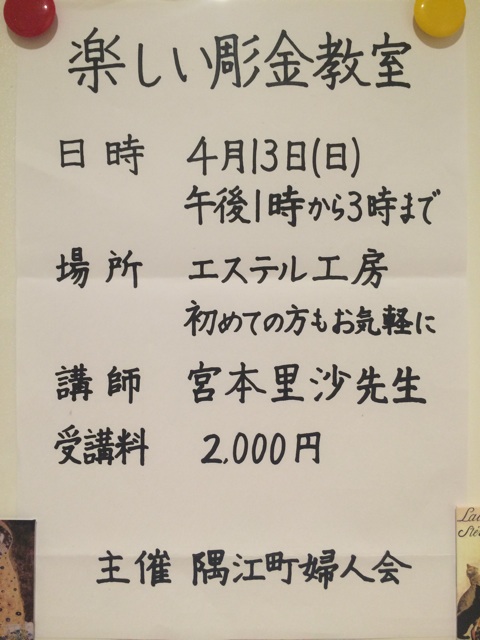 楽しい彫金教室
日時 4月13日(日)
午後1時から3時まで
場所 エステル工房
初めての方もお気軽に
講師 宮本里沙先生
受講料 2,000円
主催 隅江町婦人会